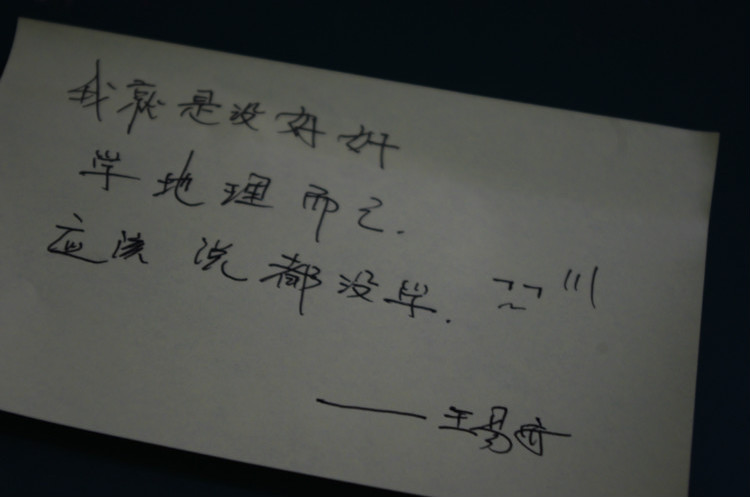 我就是没好好
学地理而已.
应该说都没学.
——王易